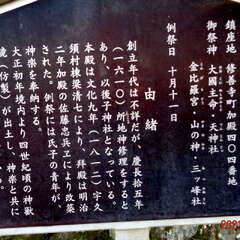 鎮座地 修善寺町加殿四〇四番地
御祭神 大国主命・天神社
金比羅宮・山の神・三ヶ峰社
例祭日 十月十一日
由緒
創立年代は不詳だが、慶長拾五年
（一六一〇）所地神修理をすると
あり、以後子神社となっている。
本殿は文化九年（一八一二）宇久
須村棟梁清七により、拝殿は明治
二年加殿の佐藤忠兵ヱにより改築
された。例祭には氏子の青年が
神楽を奉納する。
大正初年境内より四世紀頃の神獣
鏡（仿製）が出土し、神楽と共に